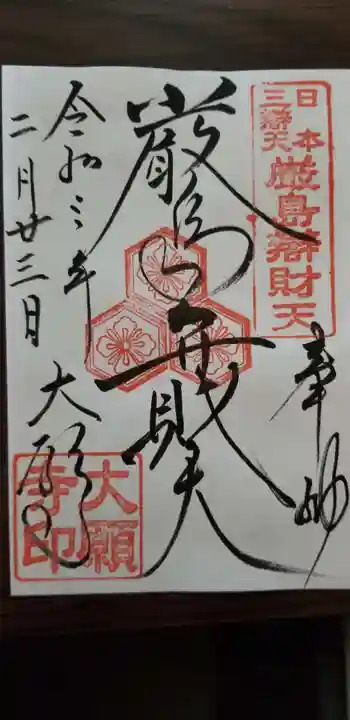 日本三辯天
厳島辯財天
奉拝
厳島弁財天
令和三年
二月廿三日
大願寺
大願寺印